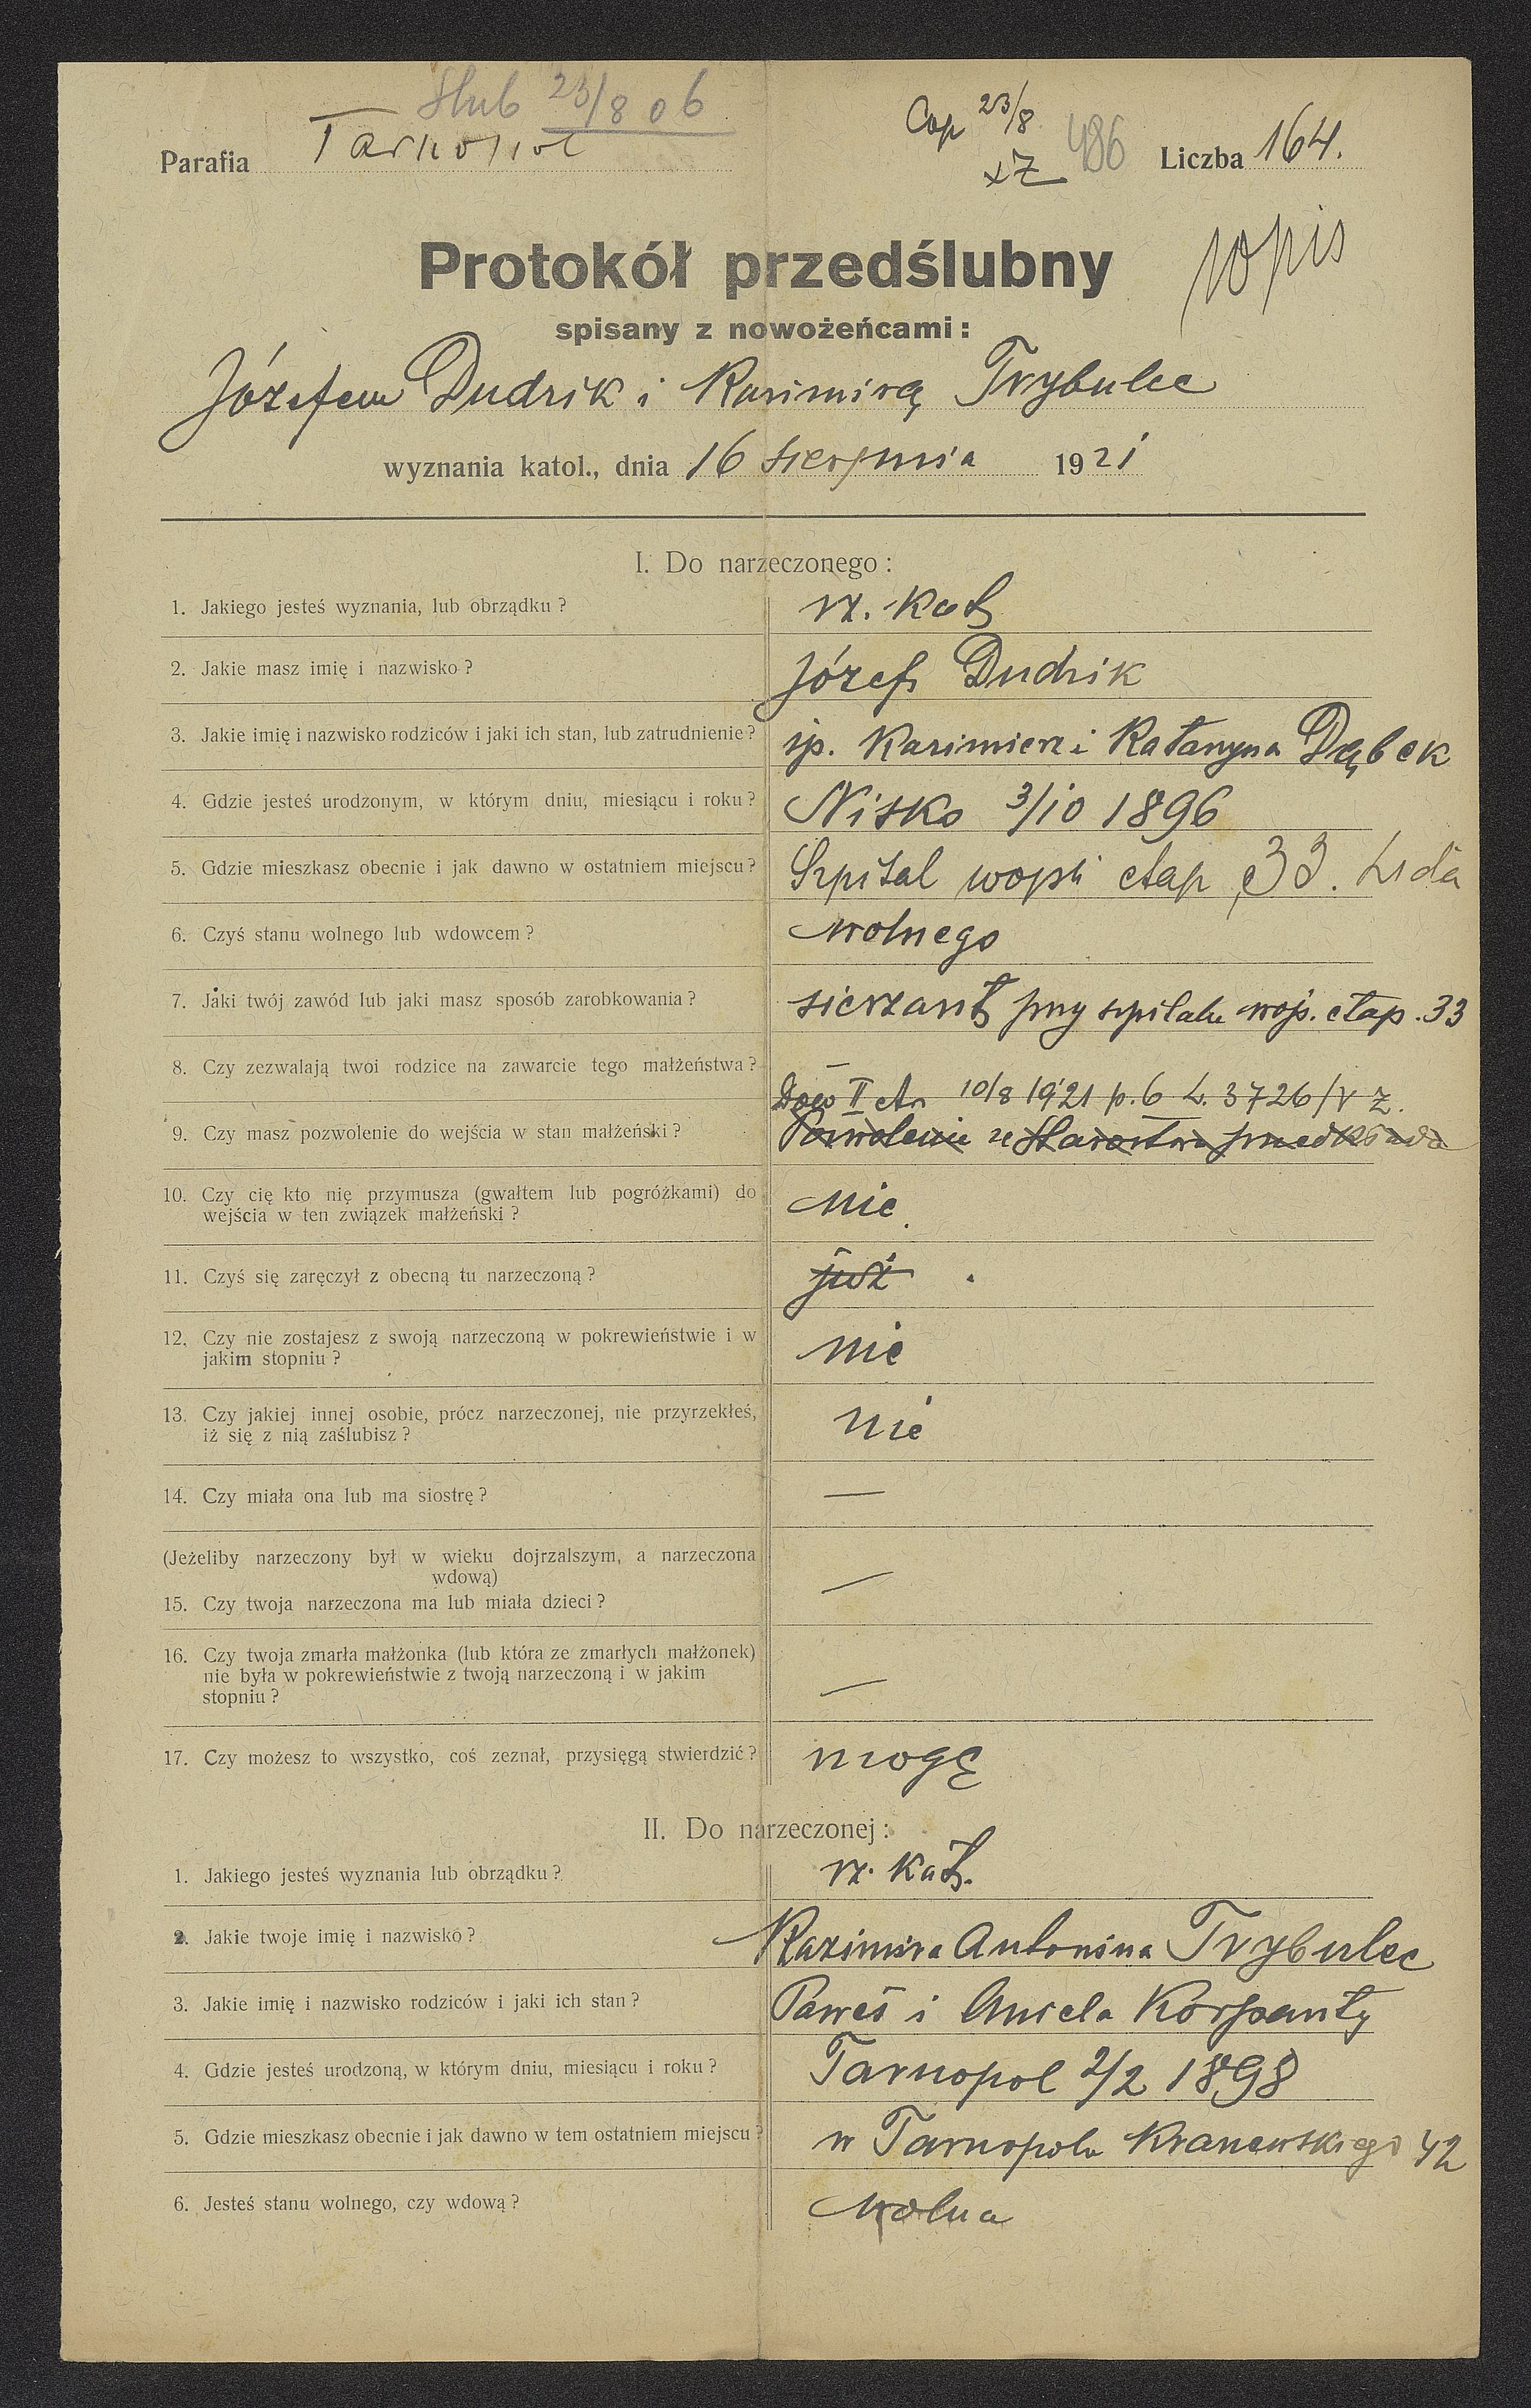 Ślub 23/8 06
Cop 23/8
486
Parafia Tarnopol
Liczba 164.
Protokół przedślubny
spisany z nowożeńcami:
Józefem Dudzik i Kazimirą Trybulec
wyznania katol., dnia 16 sierpnia 1921
I. Do narzeczonego:
1. Jakiego jesteś wyznania, lub obrządku? rz. kat
2. Jakie masz imię i nazwisko? Józef Dudzik
3. Jakie imię i nazwisko rodziców i jaki ich stan, lub zatrudnienie? śp. Kazimierz i Katarzyna Dąbek
4. Gdzie jesteś urodzonym, w którym dniu, miesiącu i roku? Nisko 3/10 1896
5. Gdzie mieszkasz obecnie i jak dawno w ostatniem miejscu? Szpital etap 33. Lida
6. Czyś stanu wolnego lub wdowcem? wolnego
7. Jaki twój zawód lub jaki masz sposób zarobkowania? sierzant przy szpitalu woj. etap. 33
8. Czy zezwalają twoi rodzice na zawarcie tego małżeństwa? —
Dow II 10/8 1921 p. 6 L. 3726/V z.
9. Czy masz pozwolenie do wejścia w stan małżeński? Pozwolenie ze Starostwa przedkłada
10. Czy cię kto nie przymusza (gwałtem lub pogróżkami) do
wejścia w ten związek małżeński? nie
11. Czyś się zaręczył z obecną tu narzeczoną? już
12. Czy nie zostajesz z swoją narzeczoną w pokrewieństwie i w
jakim stopniu? nie
13. Czy jakiej innej osobie, prócz narzeczonej, nie przyrzekłeś,
iż się z nią zaślubisz? nie
14. Czy miała ona lub ma siostrę? —
(Jeżeliby narzeczony był w wieku dojrzalszym, a narzeczona
wdową)
15. Czy twoja narzeczona ma lub miała dzieci? —
16. Czy twoja zmarła małżonka (lub która ze zmarłych małżonek)
nie była w pokrewieństwie z twoją narzeczoną i w jakim
stopniu? —
17. Czy możesz to wszystko, coś zeznał, przysięgą stwierdzić? mogę
II. Do narzeczonej:
1. Jakiego jesteś wyznania lub obrządku? rz. kat.
2. Jakie twoje imię i nazwisko? Kazimira Antonina Trybulec
3. Jakie imię i nazwisko rodziców i jaki ich stan? Paweł i Aniela Korpanty
4. Gdzie jesteś urodzoną, w którym dniu, miesiącu i roku? Tarnopol 2/2 1898
5. Gdzie mieszkasz obecnie i jak dawno w tem ostatniem miejscu? w Tarnopolu 42
6. Jesteś stanu wolnego, czy wdową? wolna